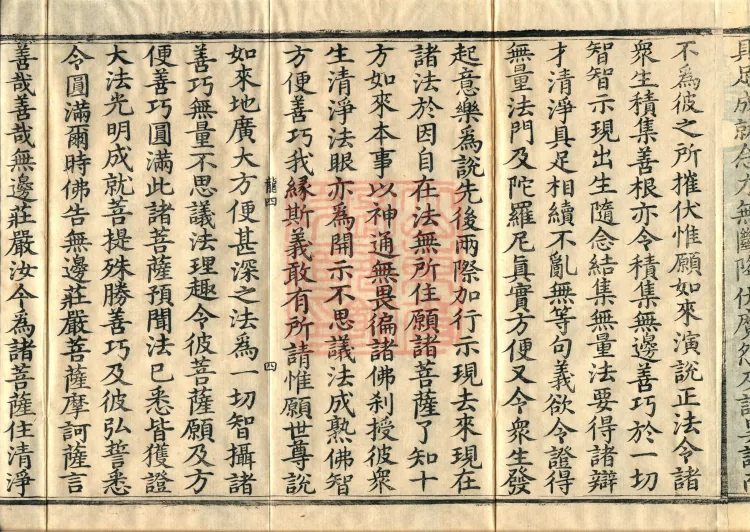 不爲彼之所摧伏惟願如來演說正法令諸
衆生積集善根亦令積集無邊善巧於一切
智智示現出生隨念結集無量法要得諸辯
才清淨具足相續不亂無等句義欲令證得
無量法門及陀羅尼眞實方便又令衆生發
起意樂爲說先後兩際加行示現去來現在
諸法於因自在法無所住願諸菩薩了知十
方如來本事以神通無畏徧諸佛刹授彼衆
生清淨法眼亦爲開示不思議法成熟佛智
方便善巧我緣斯義敢有所請惟願世尊說
龍四
四
如來地廣大方便甚深之法爲一切智攝諸
善巧無量不思議法理趣令彼菩薩願及方
便善巧圓滿此諸菩薩預聞法已悉皆獲證
大法光明成就菩提殊勝善巧及彼弘誓悉
令圓滿爾時佛告無邊莊嚴菩薩摩訶薩言
善哉善哉無邊莊嚴汝今爲諸菩薩住清淨